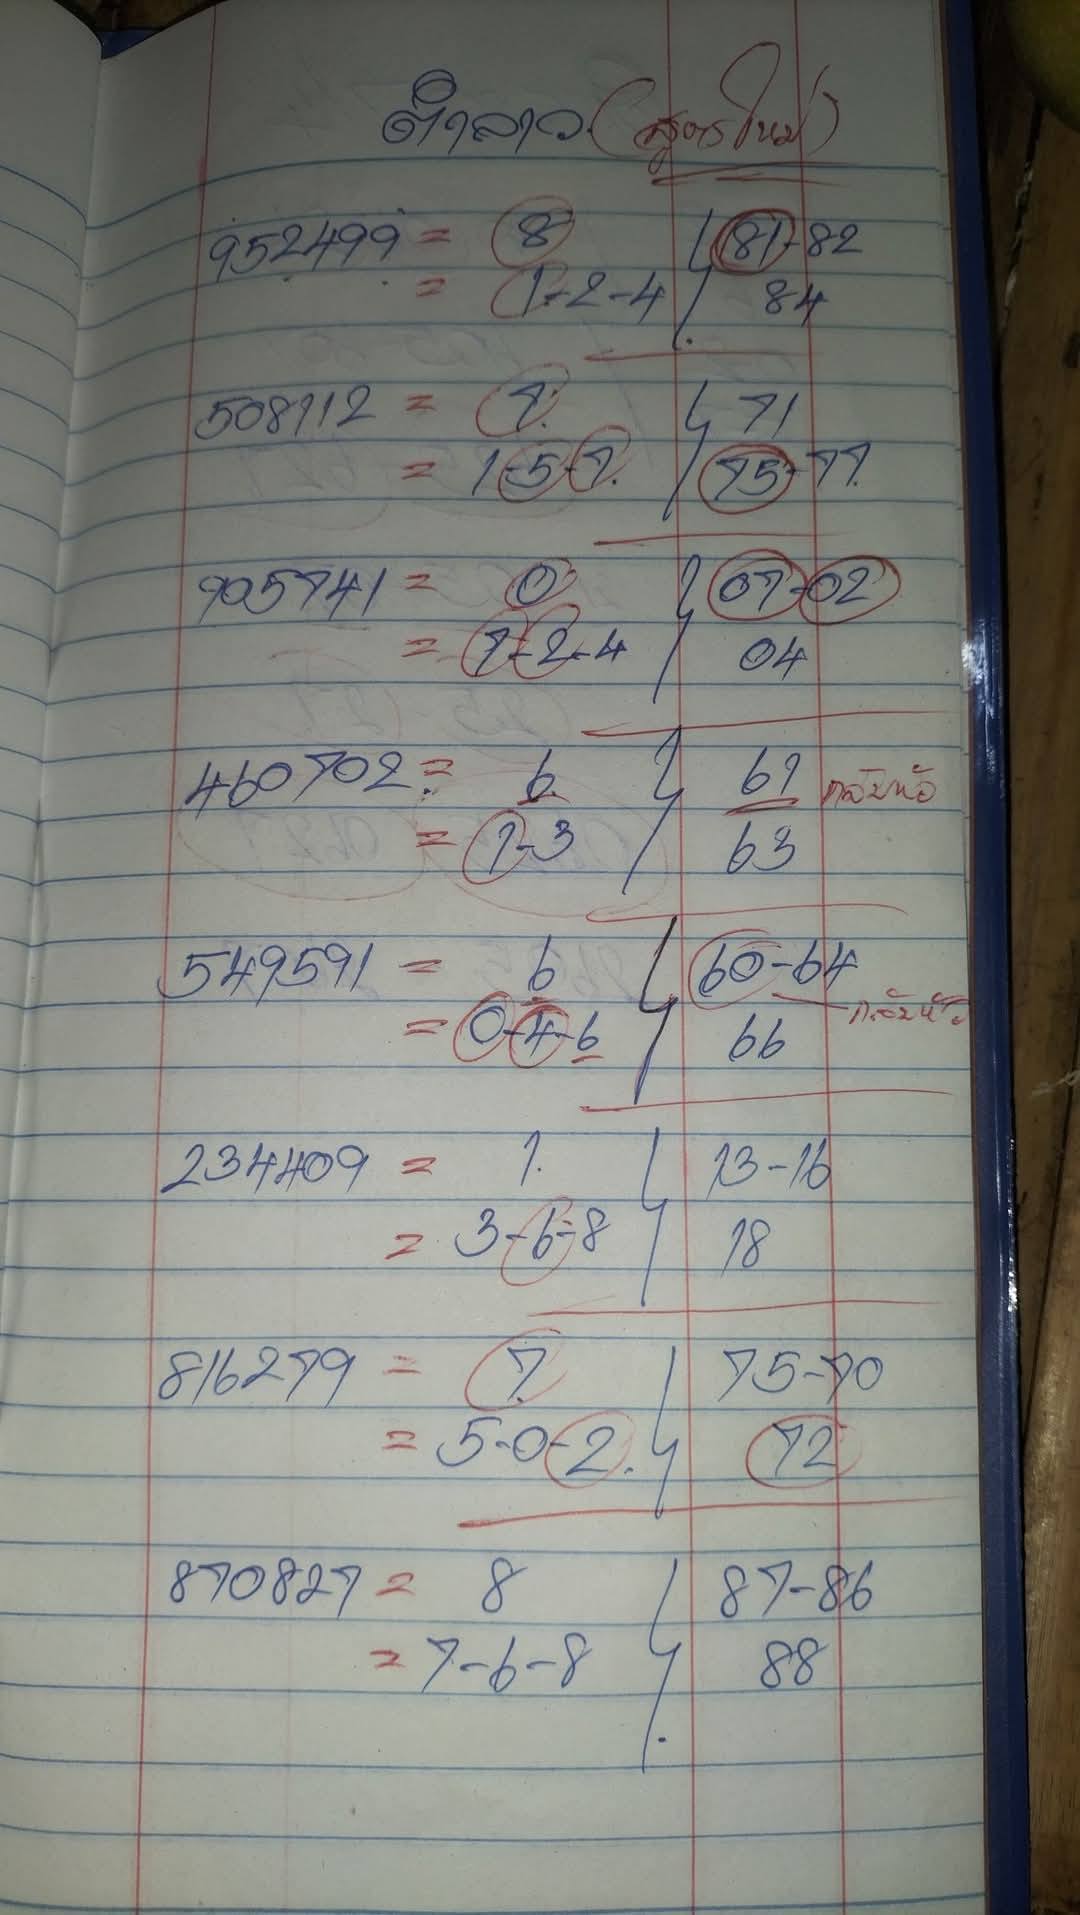 ตำลาว (สูตรใหม่)
952499 = 8 81-82
= 1-2-4 84
508112 = 7. 71
= 1-5-7. 75-77.
905741 = 0 07-02
= 7-2-4 04
460702 = 6 61 กลับหัว
= 1-3 63
549591 = 6 60-64
= 0-4-6 66 กลับหัว
234409 = 1. 13-16
= 3-6-8 18
816279 = 7. 75-70
= 5-0-2. 72
870827 = 8 87-86
= 7-6-8 88